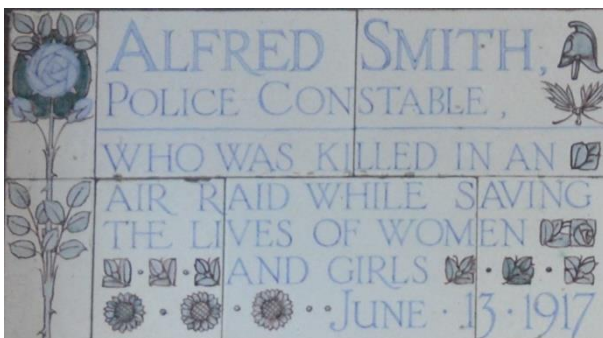 ALFRED SMITH,
POLICE CONSTABLE,
WHO WAS KILLED IN AN
AIR RAID WHILE SAVING
THE LIVES OF WOMEN
AND GIRLS
· JUNE · 13 · 1917